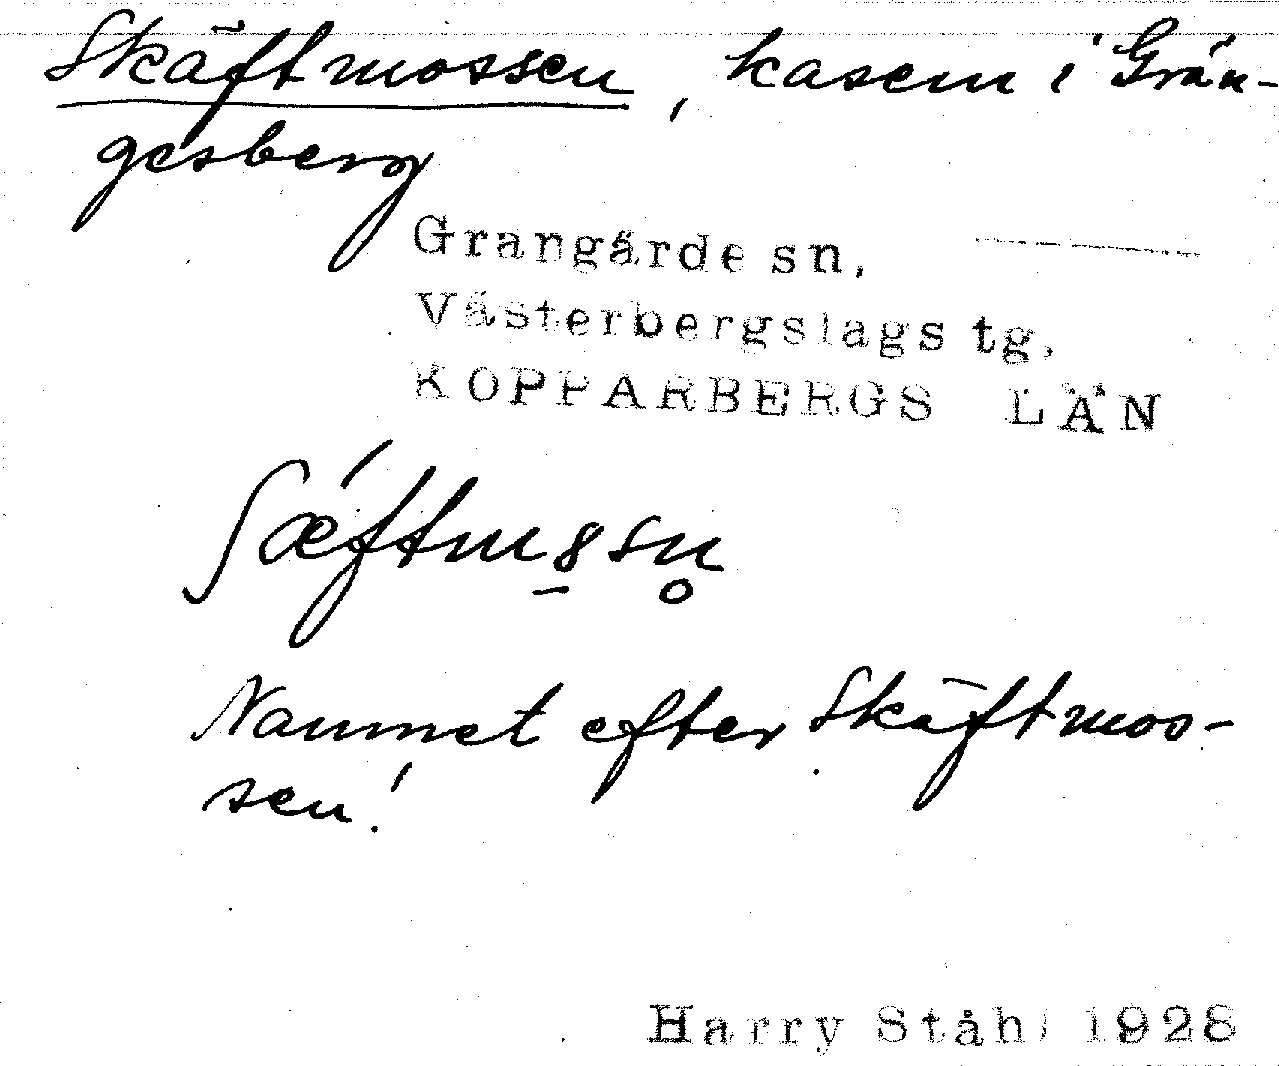 Skäftmossen, kasern i Grän-
gesberg
Grangärde sn,
Västerbergslags tg.
KOPPARBERGS LÄN
ʃǽftmo̱sn̥
Namnet efter Skäftmos-
sen!
Harry Ståhl 1928